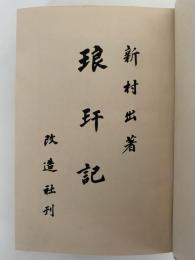 新村出著
琅玕記
改造社刊